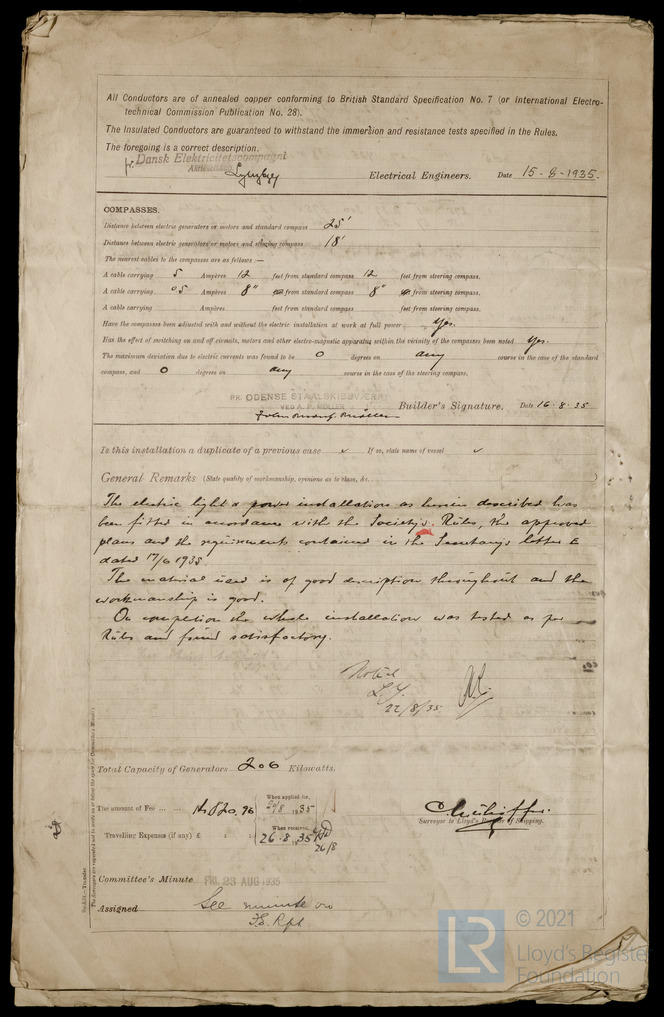 All Conductors are of annealed copper conforming to British Standard Specification No. 7 (or International Electro-
technical Commission Publication No. 28).
The Insulated Conductors are guaranteed to withstand the immersion and resistance tests specified in the Rules.
The foregoing is a correct description.
pr. Dansk Elektricitetscompagni
Aktieselskab Electrical Engineers. Date 15-8-1935.
COMPASSES.
Distance between electric generators or motors and standard compass 25'
Distance between electric generators or motors and steering compass 18'
The nearest cables to the compasses are as follows:—
A cable carrying 5 Ampères 12 feet from standard compass 12 feet from steering compass.
A cable carrying 05 Ampères 8" feet from standard compass 8" feet from steering compass.
A cable carrying Ampères feet from standard compass feet from steering compass.
Have the compasses been adjusted with and without the electric installation at work at full power Yes.
Has the effect of switching on and off circuits, motors and other electro-magnetic apparatus within the vicinity of the compasses been noted Yes.
The maximum deviation due to electric currents was found to be 0 degrees on any course in the case of the standard
compass, and 0 degrees on any course in the case of the steering compass.
PR. ODENSE STAALSKIBSVÆRFT
VED A. P. MØLLER
Builder's Signature. Date 16.8.35
Is this installation a duplicate of a previous case ✓ If so, state name of vessel ✓
General Remarks (State quality of workmanship, opinions as to class, &c. )
The electric light & power installation as herein described has
been fitted in accordance with the Society's Rules, the approved
plans and the requirements contained in the Secretary's letter E
dated 17/6 1935.
The material used is of good description throughout and the
workmanship is good.
On completion the whole installation was tested as per
Rules and found satisfactory.
Noted
22/8/35
Total Capacity of Generators 206 Kilowatts.
The amount of Fee ... ... 820,96 When applied for, 1935
Travelling Expenses (if any) £ : : When received, 26.8.1935
26/8
Surveyor to Lloyd's Register of Shipping.
Committee's Minute FRI. 23 AUG 1935
Assigned See minute on
F.E. Rpt
LR
© 2021
Lloyd's Register
Foundation